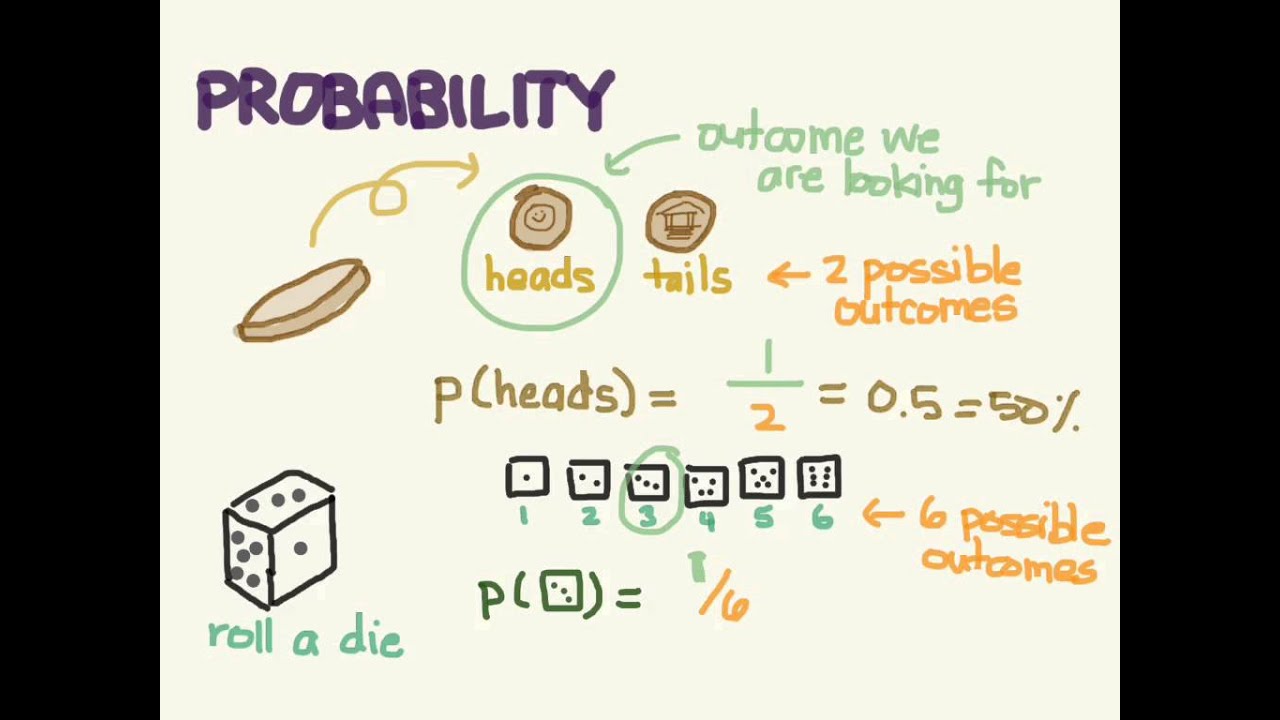 PROBABILITY
outcome we
are looking for
heads tails ← 2 possible
outcomes
p(heads) = 1/2 = 0.5 = 50%
1 2 3 4 5 6 ← 6 possible
outcomes
p(⚂) = 1/6
roll a die